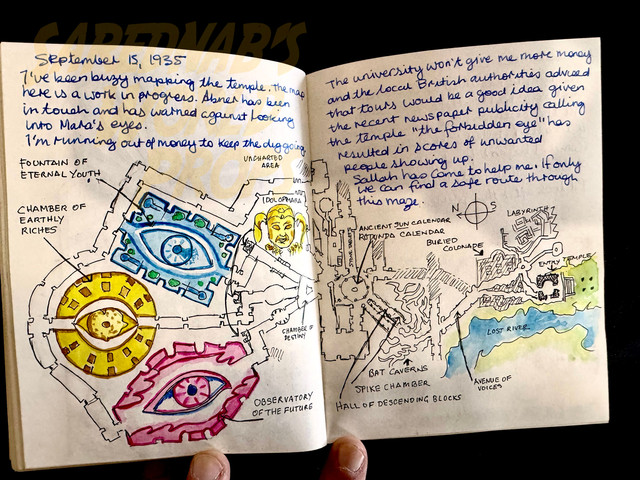 SABERNAB'S
September 15, 1935
I've been buzy mapping the temple. The map
here is a work in progress. Abner has been
in touch and has warned against looking
into Mara's eyes.
I'm running out of money to keep the dig going.
FOUNTAIN OF
ETERNAL YOUTH
UNCHARTED
AREA
IDOL OF MARA
CHAMBER OF
EARTHLY
RICHES
CHAMBER OF
DESTINY
OBSERVATORY
OF THE FUTURE
The university won't give me more money
and the local British authorities adviced
that tours would be a good idea given
the recent newspaper publicity calling
the temple "the forbidden eye" has
resulted in scores of unwanted
people showing up.
Sallah has come to help me. If only
we can find a safe route through
this maze.
N S
LABYRINTH
ANCIENT SUN CALENDAR
ROTUNDA CALENDAR
BURIED
COLONADE
ENTRY TEMPLE
LOST RIVER
BAT CAVERNS
AVENUE OF
VOICES
SPIKE CHAMBER
HALL OF DESCENDING BLOCKS